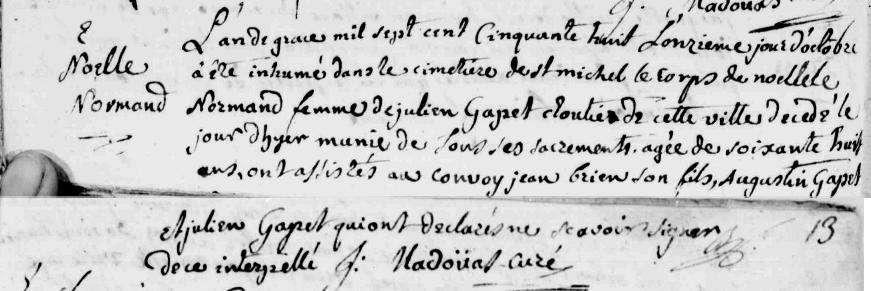 J: Nadoüas
E
Noelle
Normand
L'an de grace mil sept cent Cinquante huit L'onzieme jour d'octobre
à été inhumé dans le cimetière de st michel le corps de noelle le
Normand femme de julien Gapet cloutier de cette ville decedé le
jour d'hyer munie de tous ses sacrements. agée de soixante huit
ans, ont assistés au convoy jean brien son fils, Augustin Gapet
et julien Gapet qui ont declarés ne scavoir signer
de ce interpellé J: Nadoüas curé
13